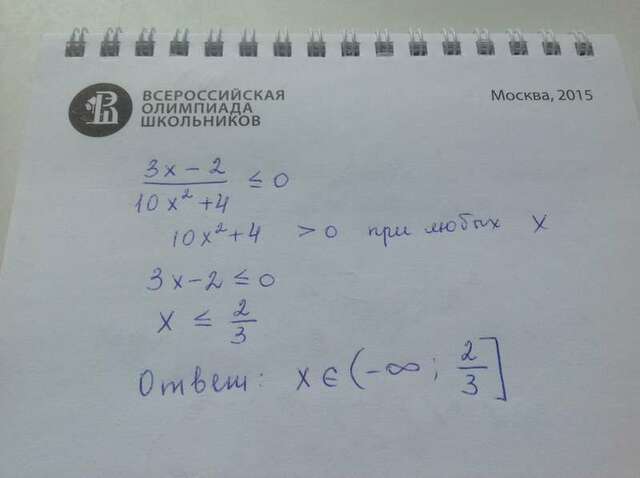 ВСЕРОССИЙСКАЯ
ОЛИМПИАДА
ШКОЛЬНИКОВ
Москва, 2015
(3x - 2)/(10x² + 4) ≤ 0
10x² + 4 > 0 при любых x
3x - 2 ≤ 0
x ≤ 2/3
Ответ: x ∈ (-∞; 2/3]